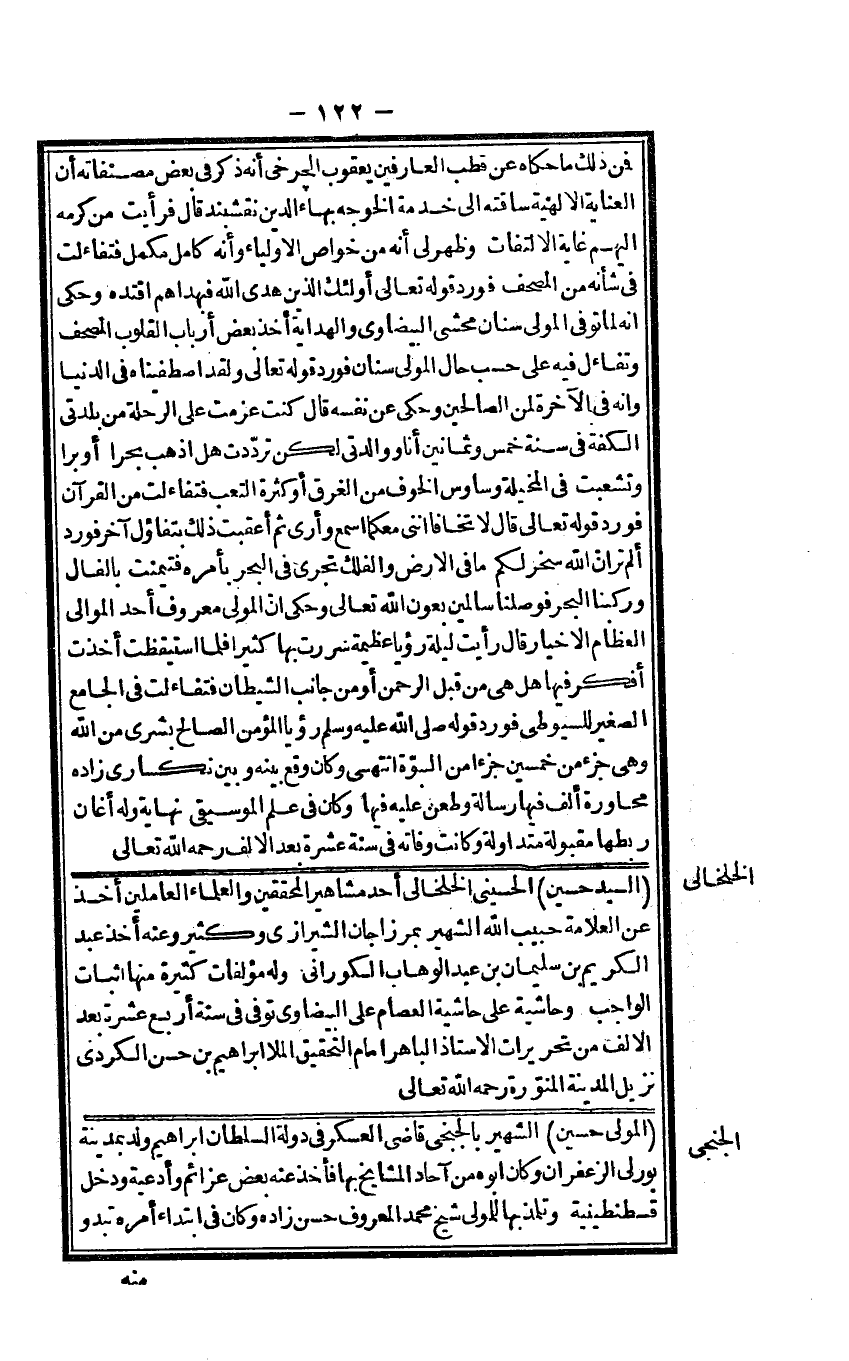 — ١٢٢ —
فن ذلك ماحكاه عن قطب العارفين يعقوب الجرخى أنه ذكر فى بعض مصنفاته أن
العناية الالهية ساقته الى خدمة الخوجه بهاء الدين نقشبند قال فرأيت من كرمه
اليهم غاية الالتفات وظهر لى أنه من خواص الاولياء وأنه كامل مكمل فتفاءلت
فى شأنه من المصحف فورد قوله تعالى أولئك الذين هدى الله فبهداهم اقتده وحكى
انه لما توفى المولى سنان محشى البيضاوى والهداية أخذ بعض أرباب القلوب المصحف
وتفاءل فيه على حسب حال المولى سنان فورد قوله تعالى ولقد اصطفيناه فى الدنيا
وانه فى الآخرة لمن الصالحين وحكى عن نفسه قال كنت عزمت على الرحلة من بلدتى
الكفة فى سنة خمس وثمانين أنا ووالدتى لكن تردّدت هل اذهب بحرا أوبرا
وتشعبت فى المخيلة وساوس الخوف من الغرق أو كثرة التعب فتفاءلت من القرآن
فورد قوله تعالى قال لا تخافا اننى معكما اسمع وأرى ثم أعقبت ذلك بتفاؤل آخر فورد
ألم تران الله سخر لكم مافى الارض والفلك تجرى فى البحر بأمره فتيمنت بالفال
وركبنا البحر فوصلنا سالمين بعون الله تعالى وحكى انّ المولى معروف أحد الموالى
العظام الاخيار قال رأيت ليلة رؤيا عظيمة سررت بها كثيرا فلما استيقظت أخذت
أفكر فيها هل هى من قبل الرحمن أو من جانب الشيطان فتفاءلت فى الجامع
الصغير للسيوطى فورد قوله صلى الله عليه وسلم رؤيا المؤمن الصالح بشرى من الله
وهى جزء من خمسين جزءا من النبوّة انتهى وكان وقع بينه وبين نكسارى زاده
محاورة ألف فيها رسالة وطعن عليه فيها وكان فى علم الموسيقى نهاية وله أغان
ربطها مقبولة متداولة وكانت وفاته فى سنة عشرة بعد الالف رحمه الله تعالى
الخلخالى
(السيد حسين) الحسينى الخلخالى أحد مشاهير المحققين والعلماء العاملين أخذ
عن العلامة حبيب الله الشهير بمرزاجان الشيرازى وكثير وعنه أخذ عبد
الكريم بن سليمان بن عبد الوهاب الكورانى وله مؤلفات كثيرة منها اثبات
الواجب وحاشية على حاشية العصام على البيضاوى توفى فى سنة أربع عشرة بعد
الالف من تحريرات الاستاذ الباهر امام التحقيق الملا ابراهيم بن حسن الكردى
نزيل المدينة المنوّرة رحمه الله تعالى
الجنجى
(المولى حسين) الشهير بالجنجى قاضى العسكر فى دولة السلطان ابراهيم ولد بمدينة
بورلى الزعفران وكان ابوه من آحاد المشايخ بها فأخذ عنه بعض عزائم وأدعية ودخل
قسطنطينية وتلمذ بها للمولى شيخ محمد المعروف حسن زاده وكان فى ابتداء أمره تبدو
منه